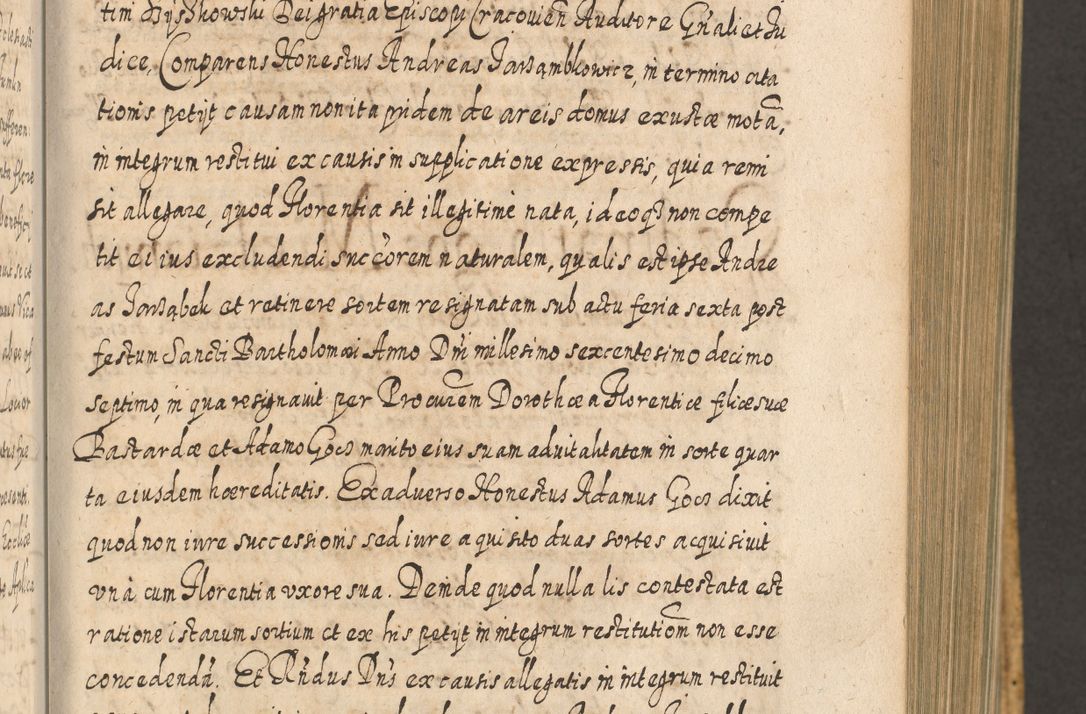 tini Szyszkowski Dei gratia Episcopi Cracovien Auditore Gnali et Ju
dice, Comparens Honestus Andreas Jarząmbkowicz, in termino cita
tionis petijt causam non ita pridem de areis domus exustæ motã,
in integrum restitui ex causis in supplicatione expressis, quia remi
sit allegare, quod Florentia sit illegitimè nata, ideoq non compe
tit ei ius excludendi succorem naturalem, qualis est ipse Andre
as Jarząbek et retinere sortem resignatam sub actu feria sexta post
festum Sancti Bartholomæi Anno Dni millesimo sexcentesimo decimo
septimo, in qua resignavit per Procurem Dorothæa Florenticæ filiæ suæ
Bastardæ et Adamo Gocz marito eius suam advitalitatem in sorte quar
ta eiusdem hæreditatis. Ex adverso Honestus Adamus Gocz dixit
quod non iure successionis sed iure aquisito duas sortes acquisivit
vnà cum Florentia vxore sua. Deinde quod nulla lis contestata est
ratione istarum sortium et ex his petijt in integrum restitutiom non esse
concedendã. Et Rndus Dns ex causis allegatis in integrum restituit